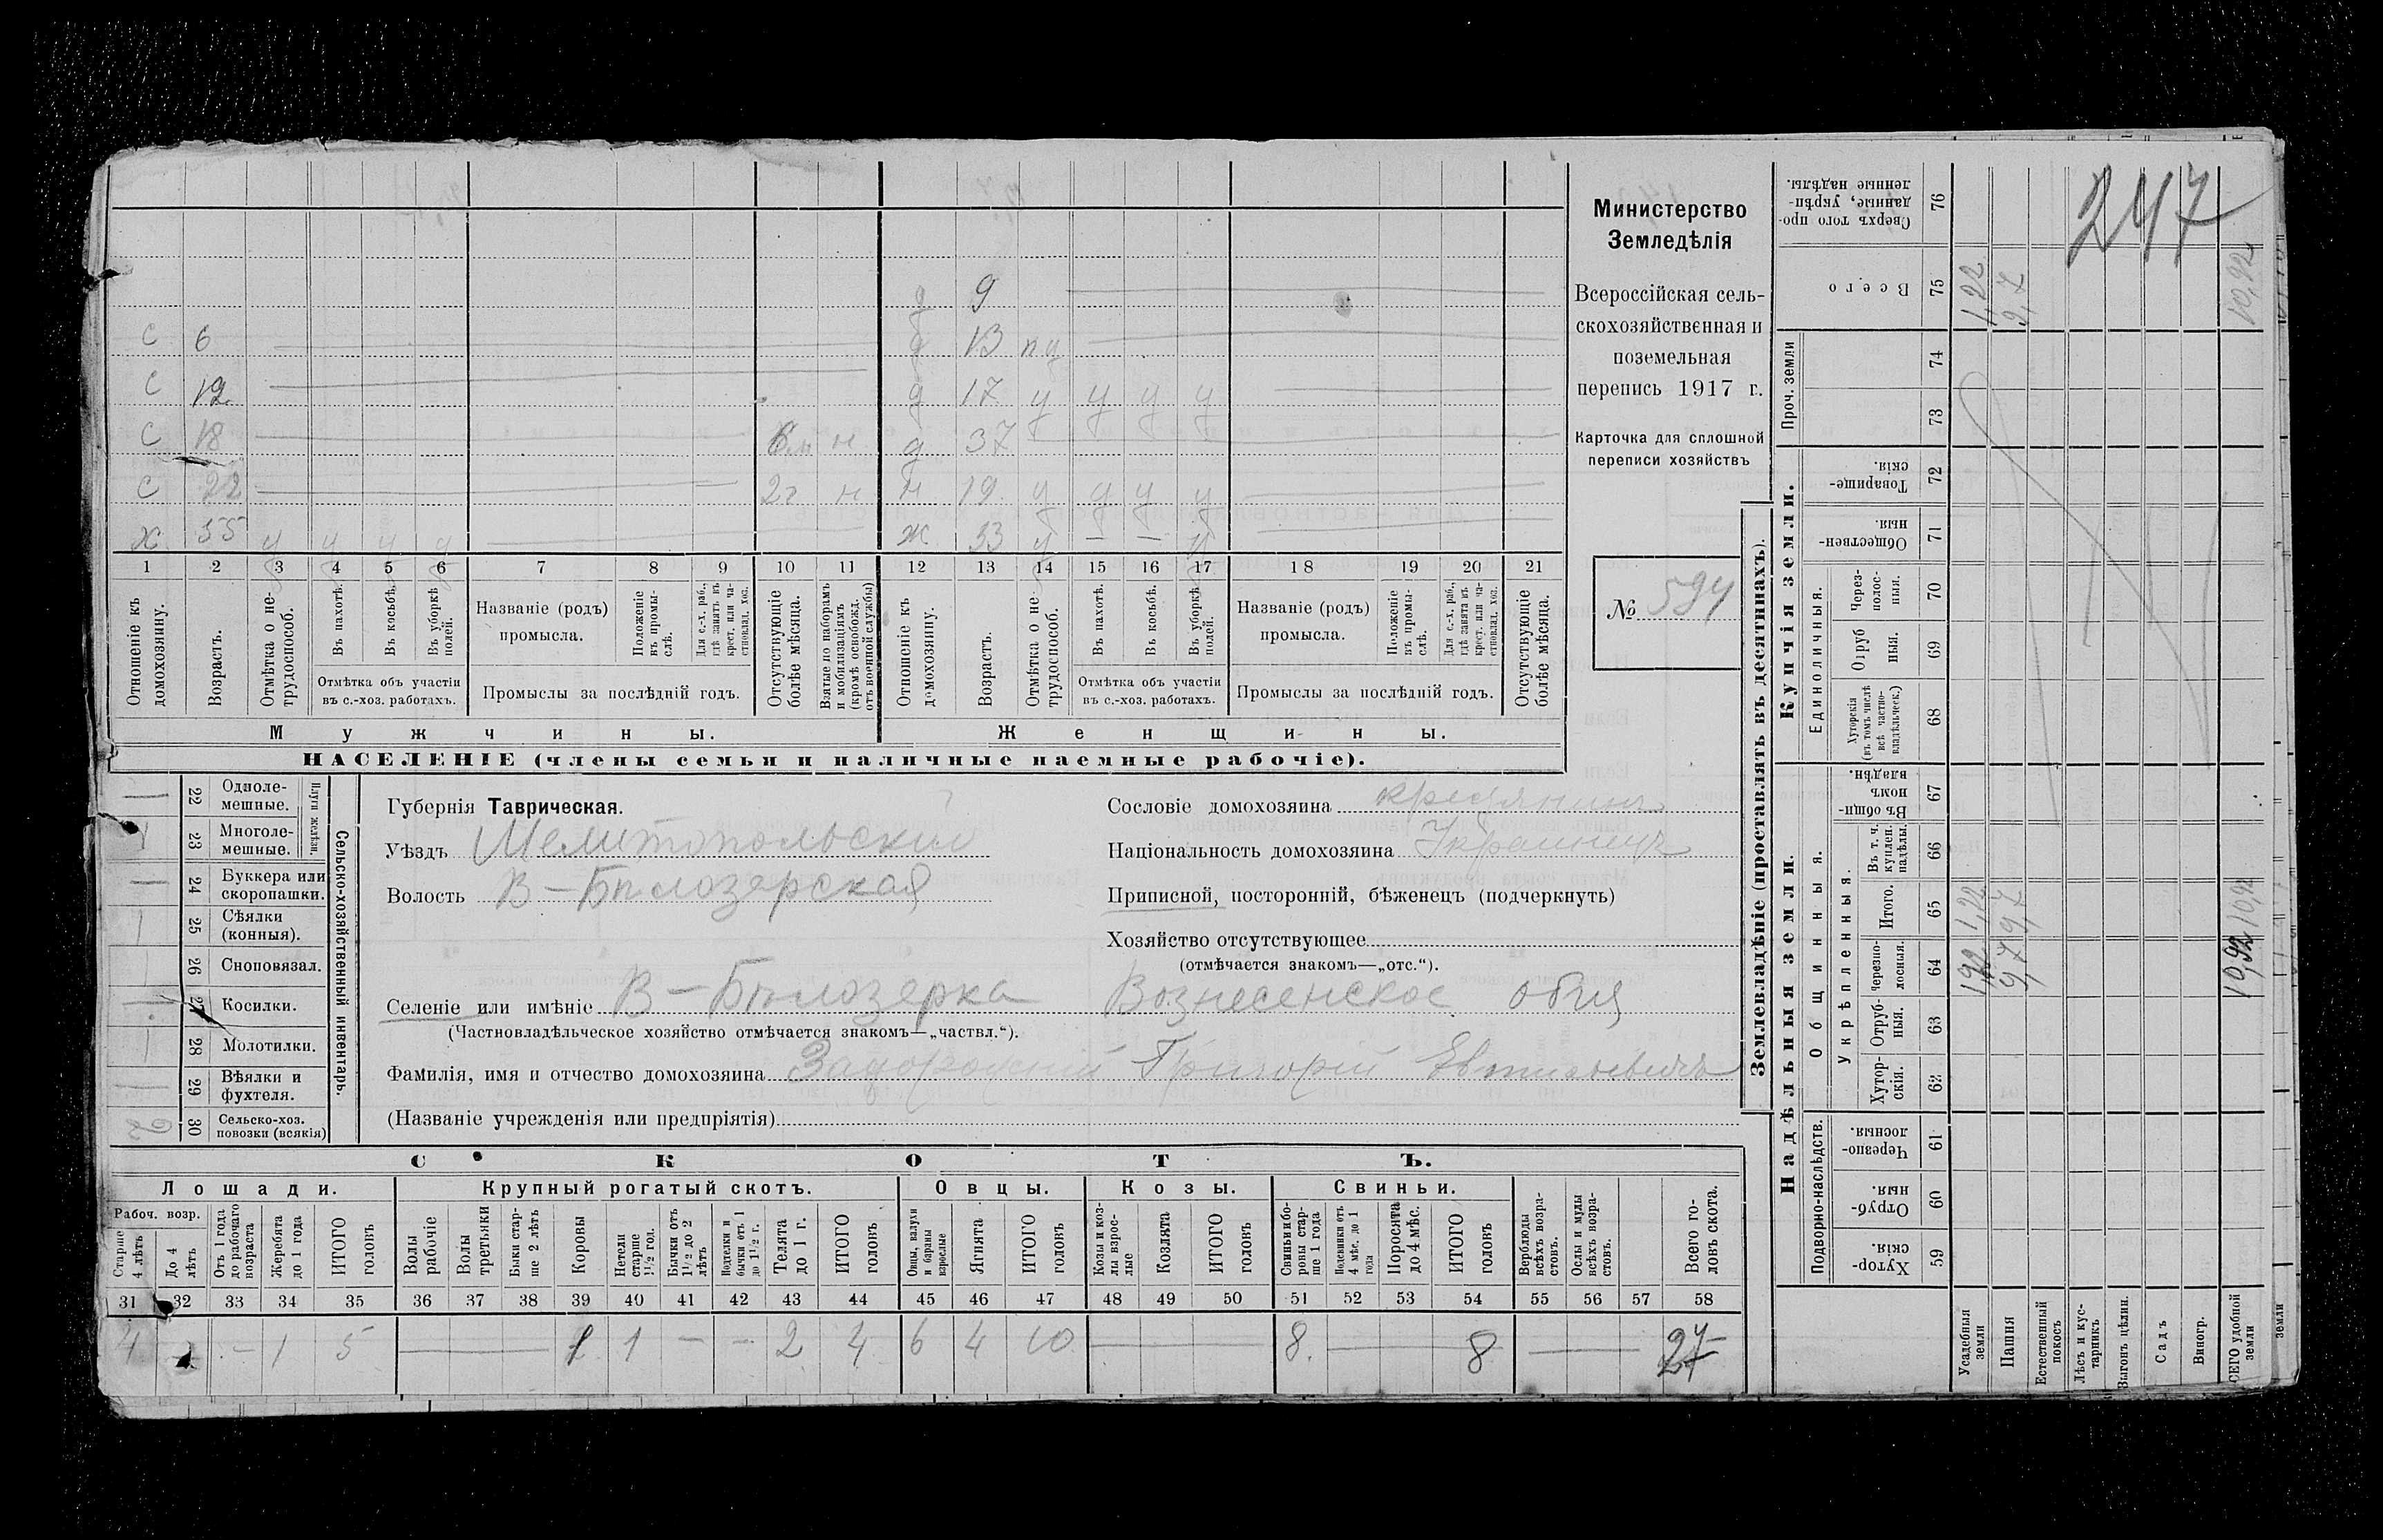 Министерство
Земледѣлія
Всероссійская сель-
скохозяйственная и
поземельная
перепись 1917 г.
Карточка для сплошной
переписи хозяйствъ
№ 594
247
д 9
С 6 д 13 пу
С 12 д 17 у у у у
С 18 6 м н д 37
С 22 2 г н н 19 у у у у
Х 55 у у у у ж 33 у — — у
1 2 3 4 5 6 7 8 9 10 11 12 13 14 15 16 17 18 19 20 21
Отношеніе къ домохозяину.
Возрастъ.
Отмѣтка о не-трудоспособ.
Въ пахотѣ.
Въ косьбѣ.
Въ уборкѣ полей.
Отмѣтка объ участіи въ с.-хоз. работахъ.
Названіе (родъ) промысла.
Положеніе въ промы-слѣ.
Для с.-х. раб., гдѣ занятъ въ крест. или ча-стновлад. хоз.
Промыслы за послѣдній годъ.
Отсутствующіе болѣе мѣсяца.
Взятые по наборамъ и мобилизаціямъ (кромѣ освобожд. отъ военной службы)
Отношеніе къ домохозяину.
Возрастъ.
Отмѣтка о не-трудоспособ.
Въ пахотѣ.
Въ косьбѣ.
Въ уборкѣ полей.
Отмѣтка объ участіи въ с.-хоз. работахъ.
Названіе (родъ) промысла.
Положеніе въ промы-слѣ.
Для с.-х. раб., гдѣ занята въ крест. или ча-стновлад. хоз.
Промыслы за послѣдній годъ.
Отсутствующіе болѣе мѣсяца.
Мужчины. Женщины.
НАСЕЛЕНІЕ (члены семьи и наличные наемные рабочіе).
Сельско-хозяйственный инвентарь.
Плуги желѣзн.
22 Одноле-мешные. —
23 Многоле-мешные. 1
24 Буккера или скоропашки. —
25 Сѣялки (конныя). 1
26 Сноповязал.
27 Косилки.
28 Молотилки. 1
29 Вѣялки и фухтеля. 1
30 Сельско-хоз. повозки (всякія) 2
Губернія Таврическая.
Уѣздъ Мелитопольскій
Волость В-Бѣлозерская
Сословіе домохозяина крестьянинъ
Національность домохозяина Украинецъ
Приписной, посторонній, бѣженецъ (подчеркнуть)
Хозяйство отсутствующее
(отмѣчается знакомъ—„отс.“).
Селеніе или имѣніе В-Бѣлозерка Вознесенское общ
(Частновладѣльческое хозяйство отмѣчается знакомъ—„частвл.“).
Фамилія, имя и отчество домохозяина Григорій
(Названіе учрежденія или предпріятія)
СКОТЪ.
Лошади. Крупный рогатый скотъ. Овцы. Козы. Свиньи.
Рабоч. возр.
Старше 4 лѣтъ
До 4 лѣтъ
Отъ 1 года до рабочаго возраста
Жеребята до 1 года
ИТОГО головъ
Волы рабочіе
Волы третьяки
Быки стар-ше 2 лѣтъ
Коровы
Нетели старше 1½ год.
Бычки отъ 1½ до 2 лѣтъ
Подтелки и бычки отъ 1 до 1½ г.
Телята до 1 г.
ИТОГО головъ
Овцы, валухи и бараны взрослые
Ягнята
ИТОГО головъ
Козы и коз-лы взрос-лые
Козлята
ИТОГО головъ
Свиньи и бо-ровы стар-ше 1 года
Подсвинки отъ 4 мѣс. до 1 года
Поросята до 4 мѣс.
ИТОГО головъ
Верблюды всѣхъ возра-стовъ.
Ослы и мулы всѣхъ возра-стовъ.
Всего го-ловъ скота.
31 32 33 34 35 36 37 38 39 40 41 42 43 44 45 46 47 48 49 50 51 52 53 54 55 56 57 58
4 — — 1 5 — 1 1 — — 2 4 6 4 10 — 8 — 8 — 27
Землевладѣніе (проставлять въ десятинахъ).
Надѣльныя земли. Купчія земли.
Подворно-наслѣдств.
Общинныя.
Укрѣпленныя.
Единоличныя.
Проч. земли
59 Хутор-скія.
60 Отруб-ныя.
61 Черезпо-лосныя.
62 Хутор-скія.
63 Отруб-ныя.
64 Черезпо-лосныя. 1,22 9,7 10,92
65 Итого. 1,22 9,7 10,92
66 Въ т. ч. куплен. надѣлы.
67 Въ общи-номъ владѣн.
68 Хуторскія (въ томъ числѣ всѣ частно-владѣльческ.)
69 Отруб ныя.
70 Через-полос-ныя.
71 Обществен-ныя.
72 Товарище-скія.
73
74
75 Всего 1,22 9,7 10,92
76 Сверхъ того про-данные, укрѣп-ленные надѣлы.
Усадебныя земли
Пашня
Естественный покосъ
Лѣсъ и кус-тарникъ
Выгонъ цѣлин.
Садъ
Виногр.
ВСЕГО удобной земли
земли